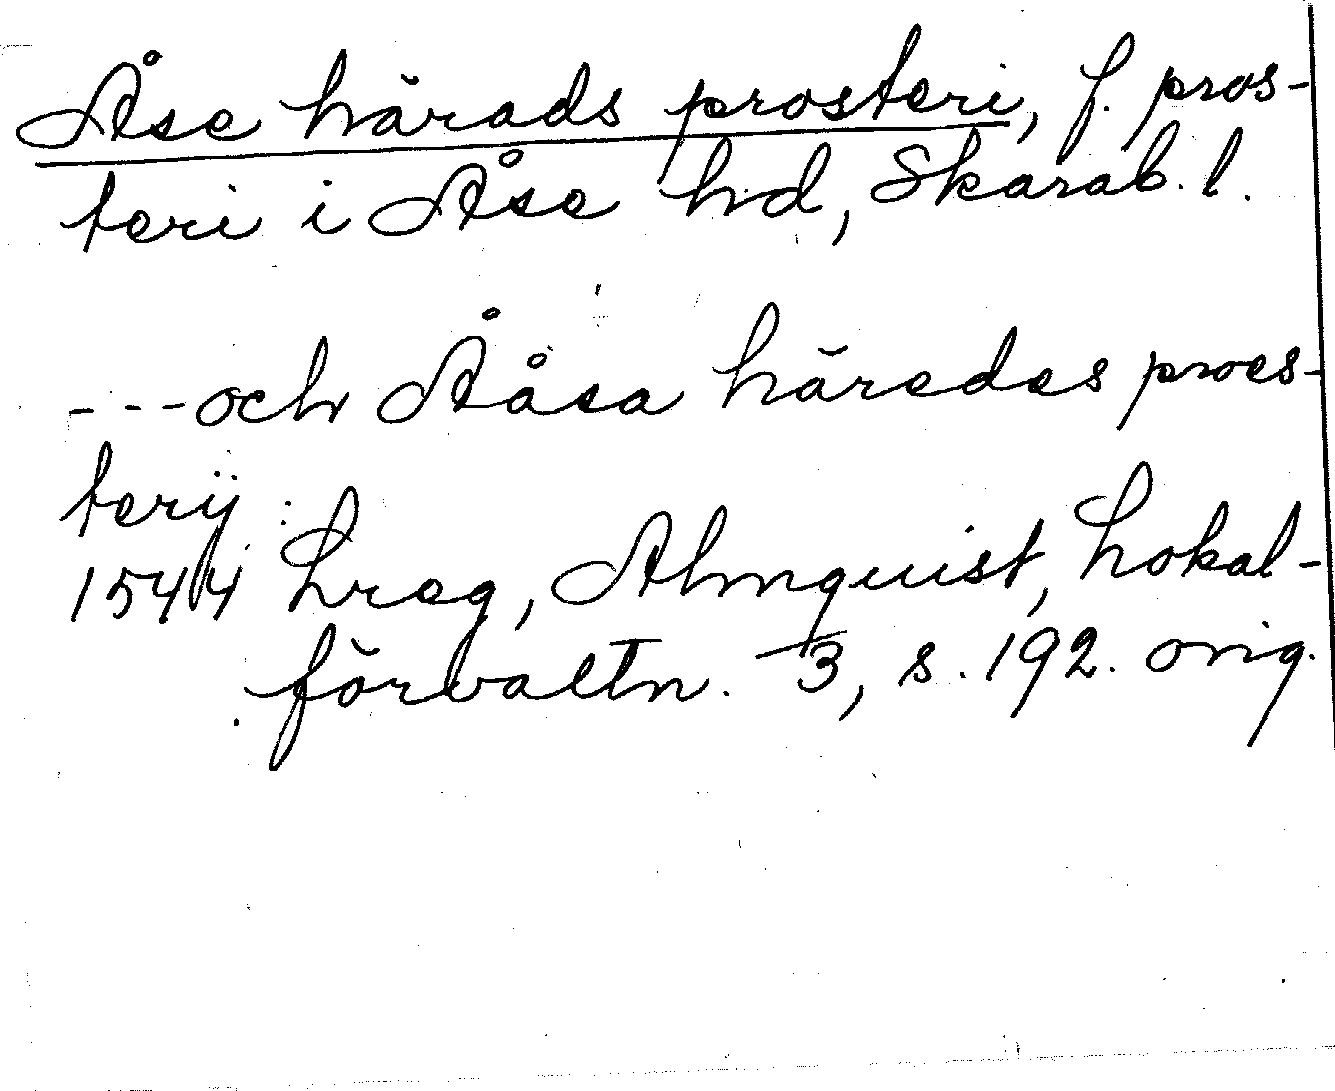 Åse härads prosteri, f. pros-
teri i Åse hd, Skarab. l.
---och Ååsa häredes proes-
terij:
1544 Lreg, Almquist, Lokal-
förvaltn. 3, s. 192. orig.